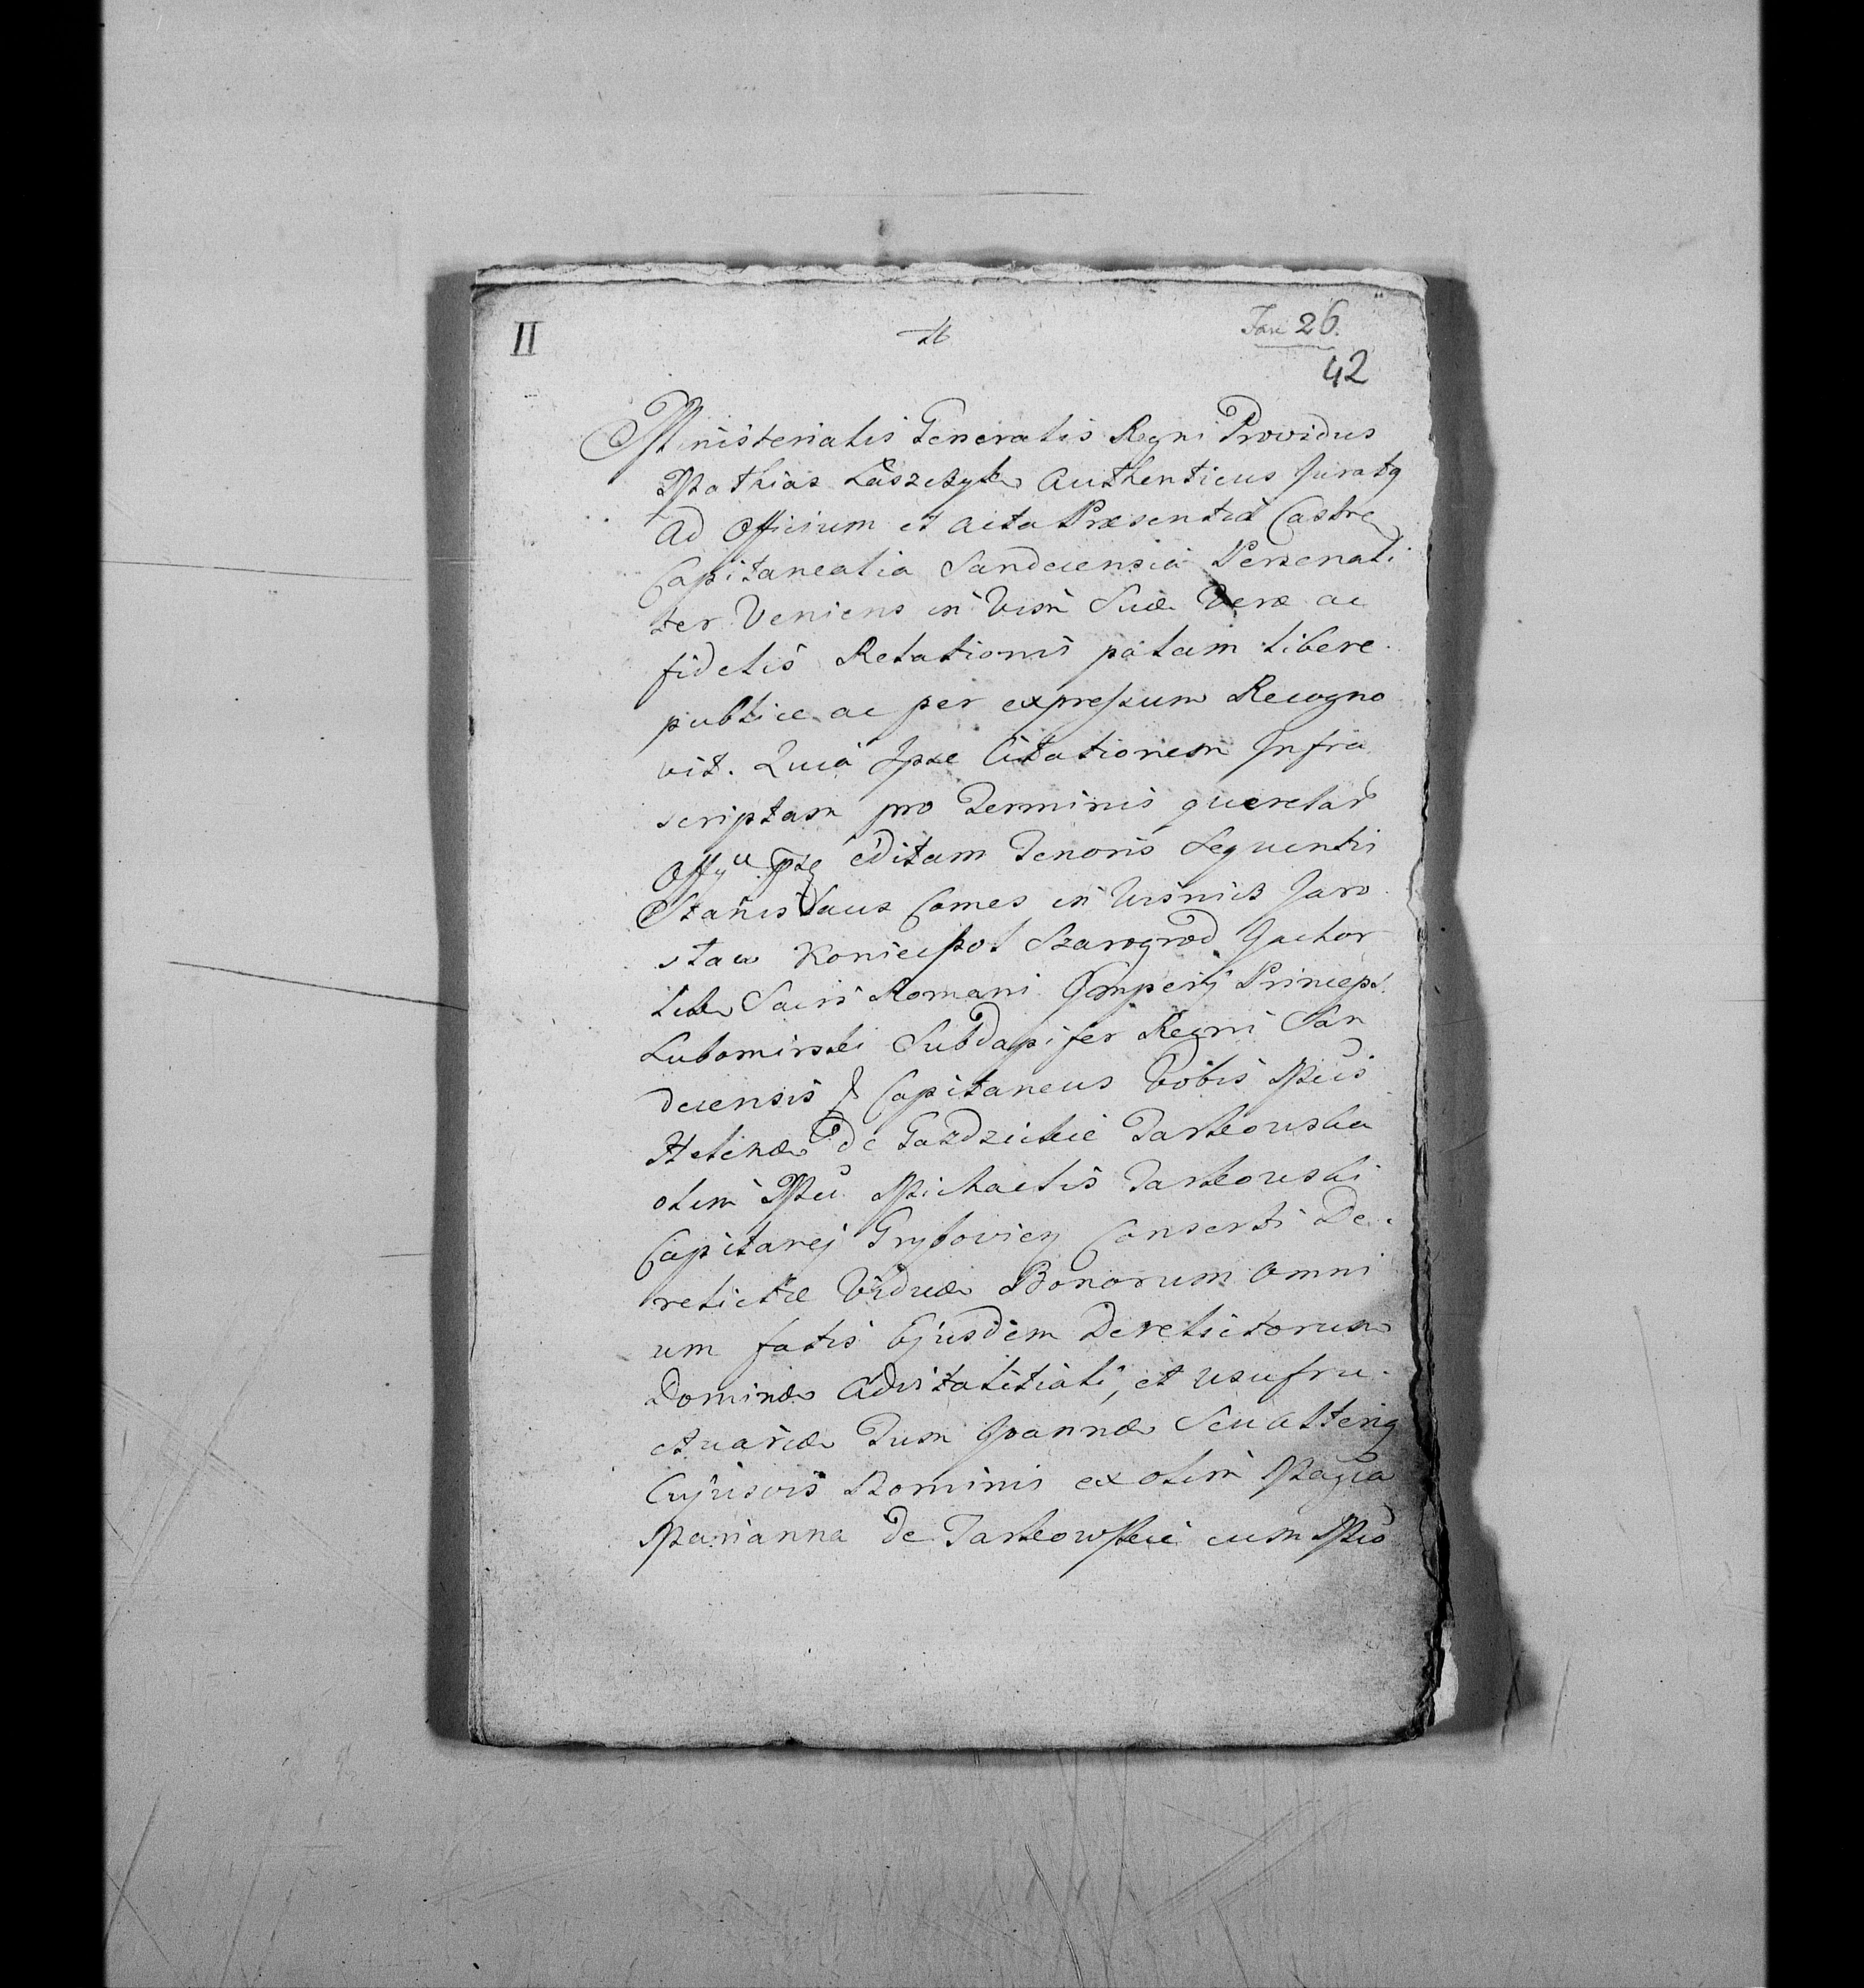 II
Jan 26.
42
Ministerialis Generalis Regni Providus
Mathias Laszczyk Authenticus Juratq
Ad Officium et acta Præsentia Castren
Capitanealia Sandecensia Personali
ter Veniens in Vim Suæ Veræ ac
fidelis Relationis palam libere
publice ac per expressum Recogno
vit. Quia Ipse Citationem Infra
scriptam pro Terminis querelar
editam Tenoris Sequentis
Stanislaus Comes in Wisnicz Jaro
slaw Koniecpol Szarogrod Jachor
Sacri Romani Imperij Princeps
Lubomirski Subdapifer Regni San
decensis & Capitaneus Vobis Mcis
Helenæ de Gazdzickie Tarkowska
olim Mci Michaelis Tarkowski
Capitanej Grybovien Consorti De
relictæ Viduæ Bonorum omni
um fatis Ejusdem Derelictorum
Dominæ Advitalitiali, et usufru
ctuariæ Tum Joannæ Seu alteriq
Cujusvis Nominis ex olim Magca
Marianna de Tarkowskie cum Mco